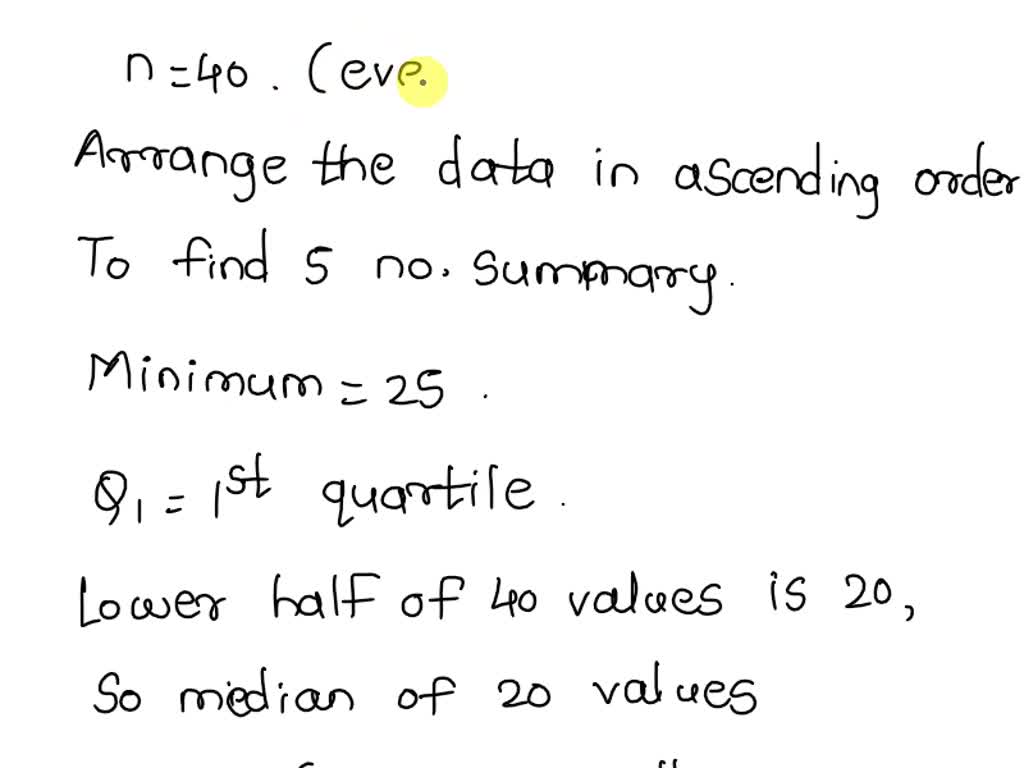 n = 40 . (eve
Arrange the data in ascending order
To find 5 no. summary.
Minimum = 25 .
Q1 = 1st quartile .
Lower half of 40 values is 20,
So median of 20 values